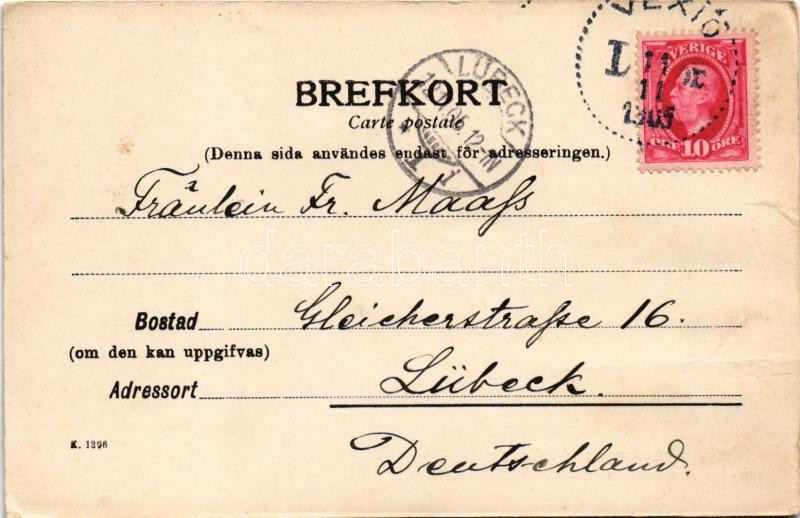 VEXIÖ
L
11
11
1905
SVERIGE
10 ÖRE
LÜBECK
12-1N
BREFKORT
Carte postale
(Denna sida användes endast för adresseringen.)
Fräulein Fr. Maaß
darabanth
Bostad Gleicherstraße 16.
(om den kan uppgifvas)
Adressort Lübeck.
K. 1396
Deutschland.